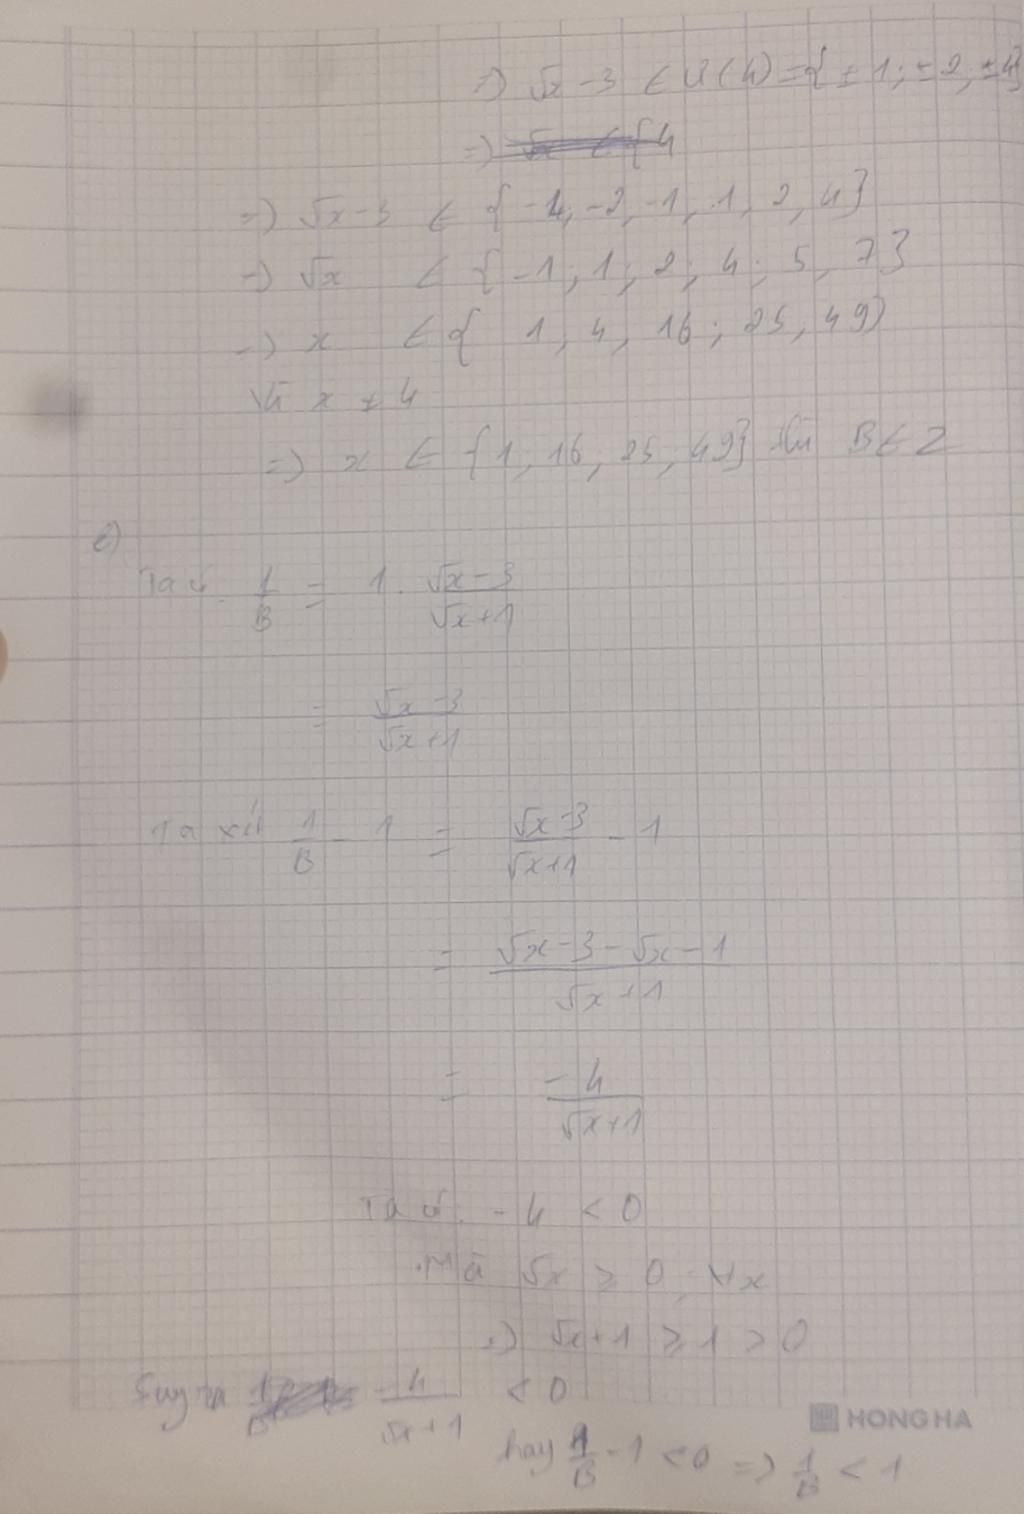 => √x - 3 ∈ Ư(4) = {±1; ±2; ±4}
=> √x ∈ {4
=> √x - 3 ∈ {-4; -2, -1, 1, 2, 4}
=> √x ∈ {-1; 1; 2; 4; 5, 7}
=> x ∈ { 1, 4, 16; 25, 49}
Vì x ≠ 4
=> x ∈ {1, 16, 25, 49} thì B ∈ Z
e)
Ta có 1/B = 1 . (√x - 3)/(√x + 1)
= (√x - 3)/(√x + 1)
Ta xét 1/B - 1 = (√x - 3)/(√x + 1) - 1
= (√x - 3 - √x - 1)/(√x + 1)
= -4/(√x + 1)
Ta có: -4 < 0
Mà √x ≥ 0, ∀x
=> √x + 1 ≥ 1 > 0
Suy ra -4/(√x + 1) < 0
hay 1/B - 1 < 0 => 1/B < 1
HONG HA